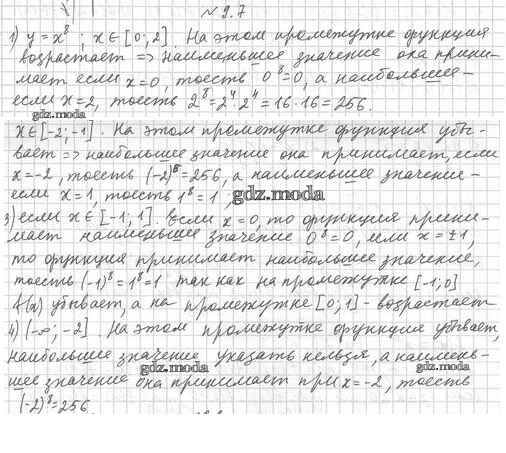 №9.7
1) y = x⁸ ; x∈[0;2] На этом промежутке функция
возрастает => наименьшее значение она прини-
мает если x=0, тоесть 0⁸=0, а наибольшее -
если x=2, тоесть 2⁸=2⁴·2⁴=16·16=256.
gdz.moda
x∈[-2;-1]. На этом промежутке функция убы-
вает => наибольшее значение она принимает, если
x=-2, тоесть (-2)⁸=256, а наименьшее значение -
если x=1, тоесть 1⁸=1
gdz.moda
3) если x∈[-1;1]. Если x=0, то функция прини-
мает наименьшее значение 0⁸=0, если x=±1,
то функция принимает наибольшее значение,
тоесть (-1)⁸=1⁸=1 так как на промежутке [-1;0]
убывает, а на промежутке [0;1] - возрастает
gdz.moda
4) (-∞;-2]. На этом промежутке функция убывает,
наибольшее значение указать нельзя, а наимень-
gdz.moda gdz.moda
шее значение она принимает при x=-2, тоесть
(-2)⁸=256